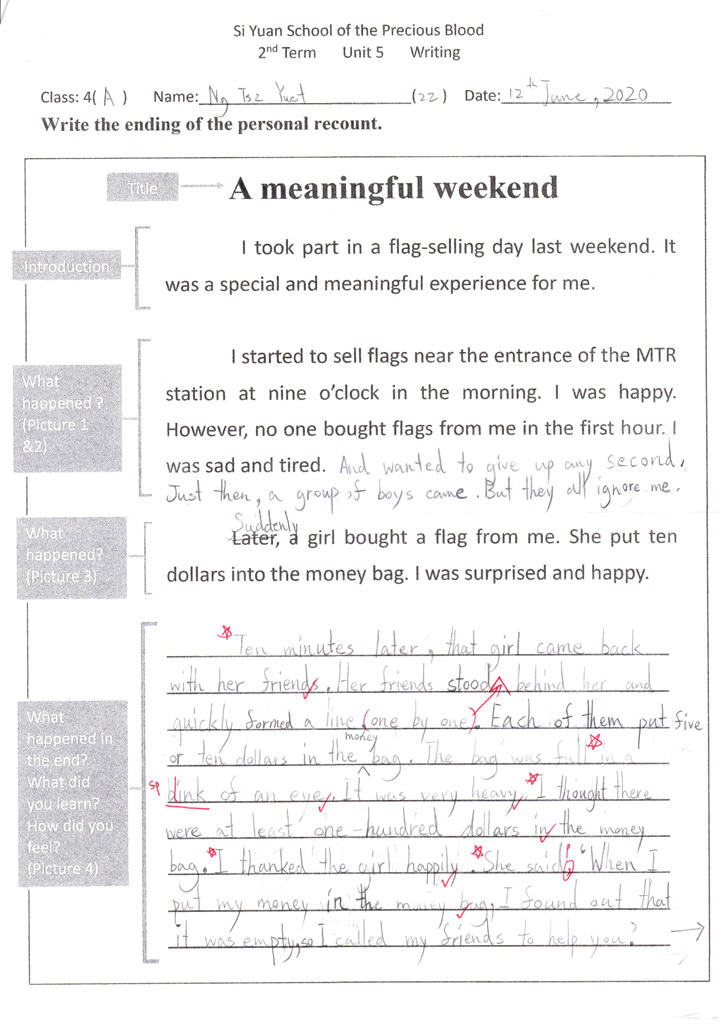 Si Yuan School of the Precious Blood
2nd Term Unit 5 Writing
Class: 4( A ) Name: Ng Tsz Yuet (22) Date: 12th June, 2020
Write the ending of the personal recount.
Title
A meaningful weekend
Introduction
I took part in a flag-selling day last weekend. It
was a special and meaningful experience for me.
What
happened ?
(Picture 1
&2)
I started to sell flags near the entrance of the MTR
station at nine o'clock in the morning. I was happy.
However, no one bought flags from me in the first hour. I
was sad and tired. And wanted to give up any second.
Just then, a group of boys came. But they all ignore me.
What
happened?
(Picture 3)
Suddenly
Later, a girl bought a flag from me. She put ten
dollars into the money bag. I was surprised and happy.
What
happened in
the end?
What did
you learn?
How did you
feel?
(Picture 4)
Ten minutes later, that girl came back
with her friends. Her friends stood behind her and
quickly formed a line (one by one). Each of them put five
money
or ten dollars in the bag. The bag was full in a
sp
blink of an eye. It was very heavy. I thought there
were at least one-hundred dollars in the money
bag. I thanked the girl happily. She said, "When I
put my money in the money bag, I found out that
it was empty, so I called my friends to help you."